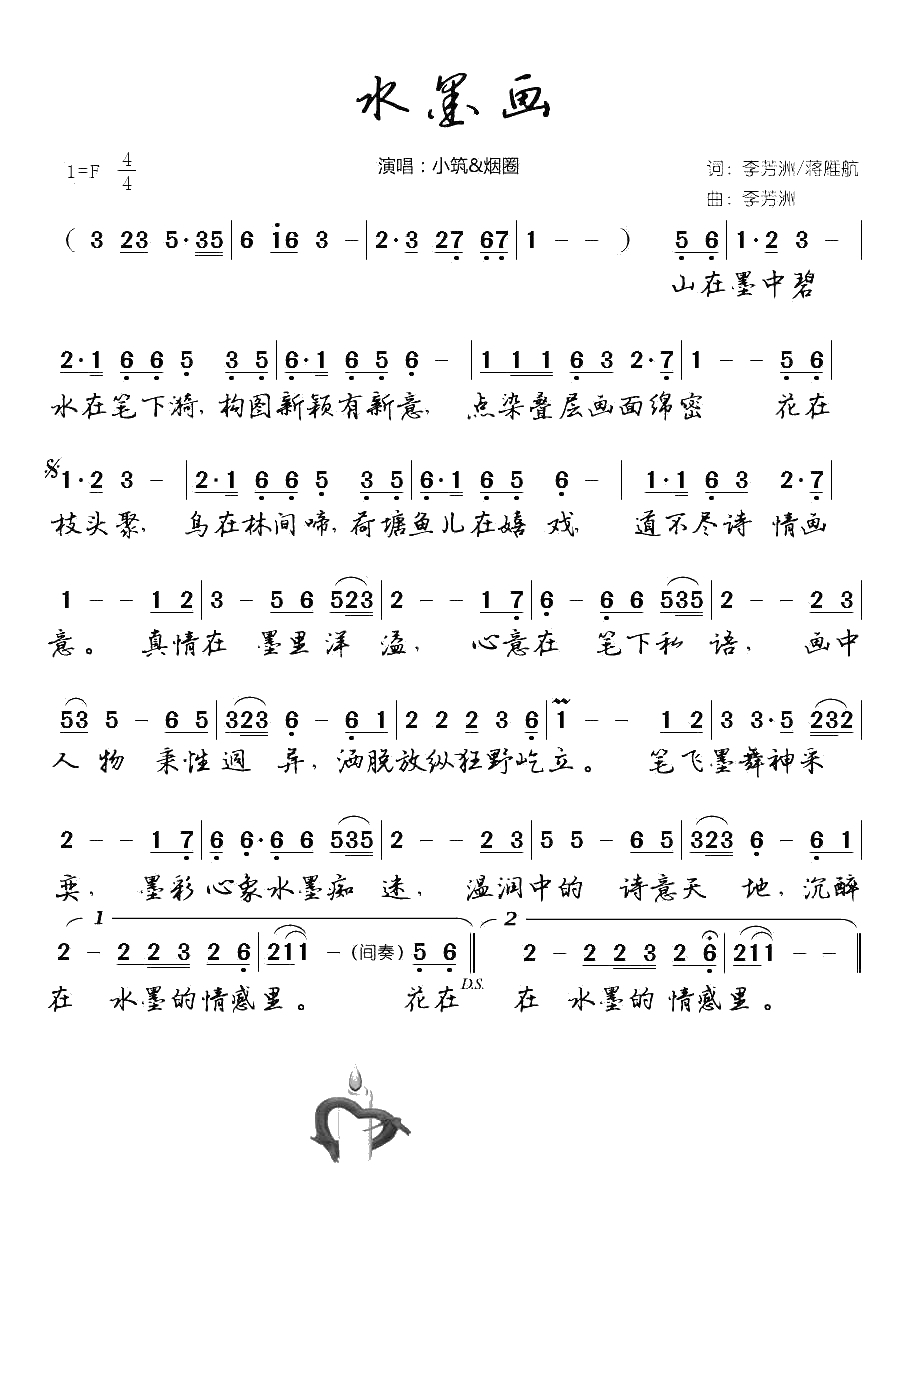 水墨画
1=F 4/4
演唱：小筑&烟圈
词：李芳洲/蒋雁航
曲：李芳洲
( 3 23 5·35 | 6 i6 3 - | 2·3 27 67 | 1 - - ) 56 | 1·2 3 - |
山在墨中碧
2·1 66 5 35 | 6·1 65 6 - | 1 11 63 2·7 | 1 - - 56 |
水在笔下漪，构图新颖有新意，点染叠层画面绵密 花在
1·2 3 - | 2·1 66 5 35 | 6·1 65 6 - | 1·1 63 2·7 |
枝头聚，鸟在林间啼，荷塘鱼儿在嬉戏，道不尽诗情画
1 - - 12 | 3 - 56 523 | 2 - - 17 | 6 - 66 535 | 2 - - 23 |
意。真情在墨里洋溢，心意在笔下私语，画中
53 5 - 65 | 323 6 - 61 | 2 2 23 6 | 1 - - 12 | 3 3·5 232 |
人物秉性迥异，洒脱放纵狂野屹立。笔飞墨舞神采
2 - - 17 | 6 6·6 6 535 | 2 - - 23 | 5 5 - 65 | 323 6 - 61 |
奕，墨彩心象水墨痴迷，温润中的诗意天地，沉醉
1 2
2 - 2 23 26 | 211 - (间奏) 56 || 2 - 2 23 26 | 211 - - ||
D.S.
在水墨的情感里。花在 在水墨的情感里。